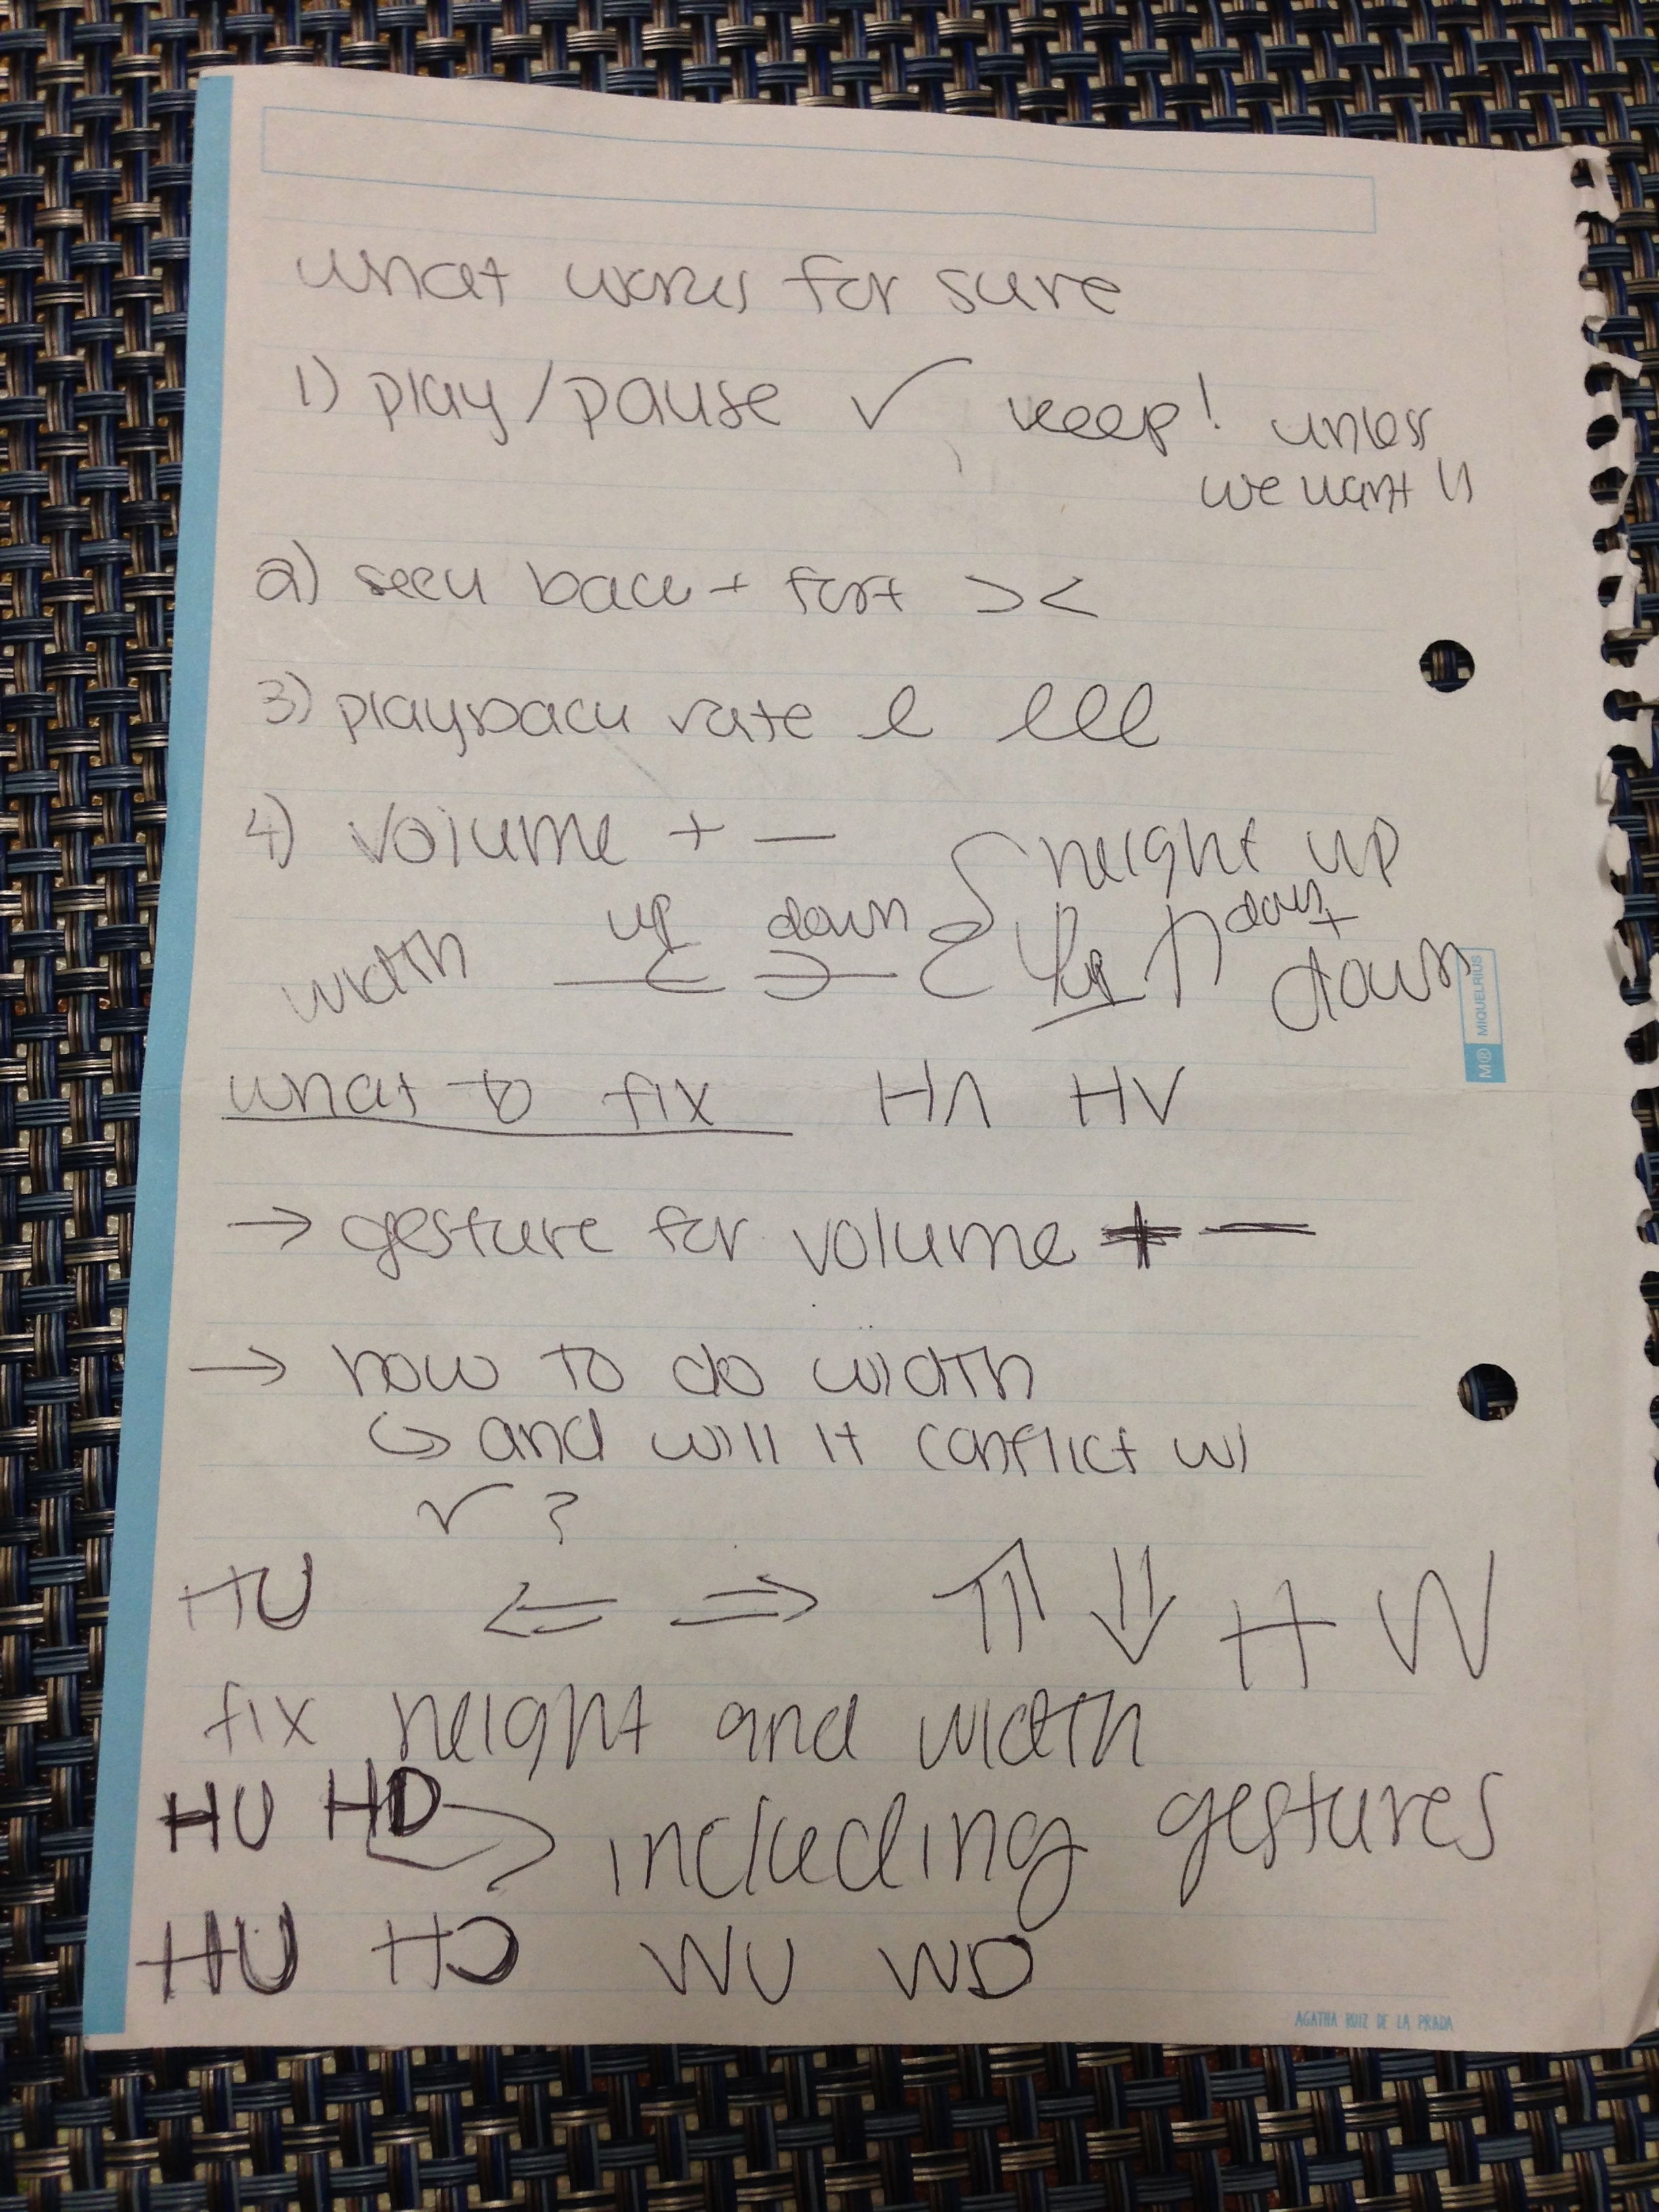 what works for sure
1) play/pause ✓ keep! unless
we want ll
2) seek back + fort > <
3) playback rate l lll
4) volume + —
height up
up down
down +
width
up
down
what to fix HΛ HV
→ gesture for volume + —
→ how to do width
↳ and will it conflict w/
✓ ?
HU ⇐ ⇒ ⇑ ⇓ H W
fix height and width
HU HD
including gestures
HU HD WU WD
M® MIQUELRIUS
AGATHA RUIZ DE LA PRADA